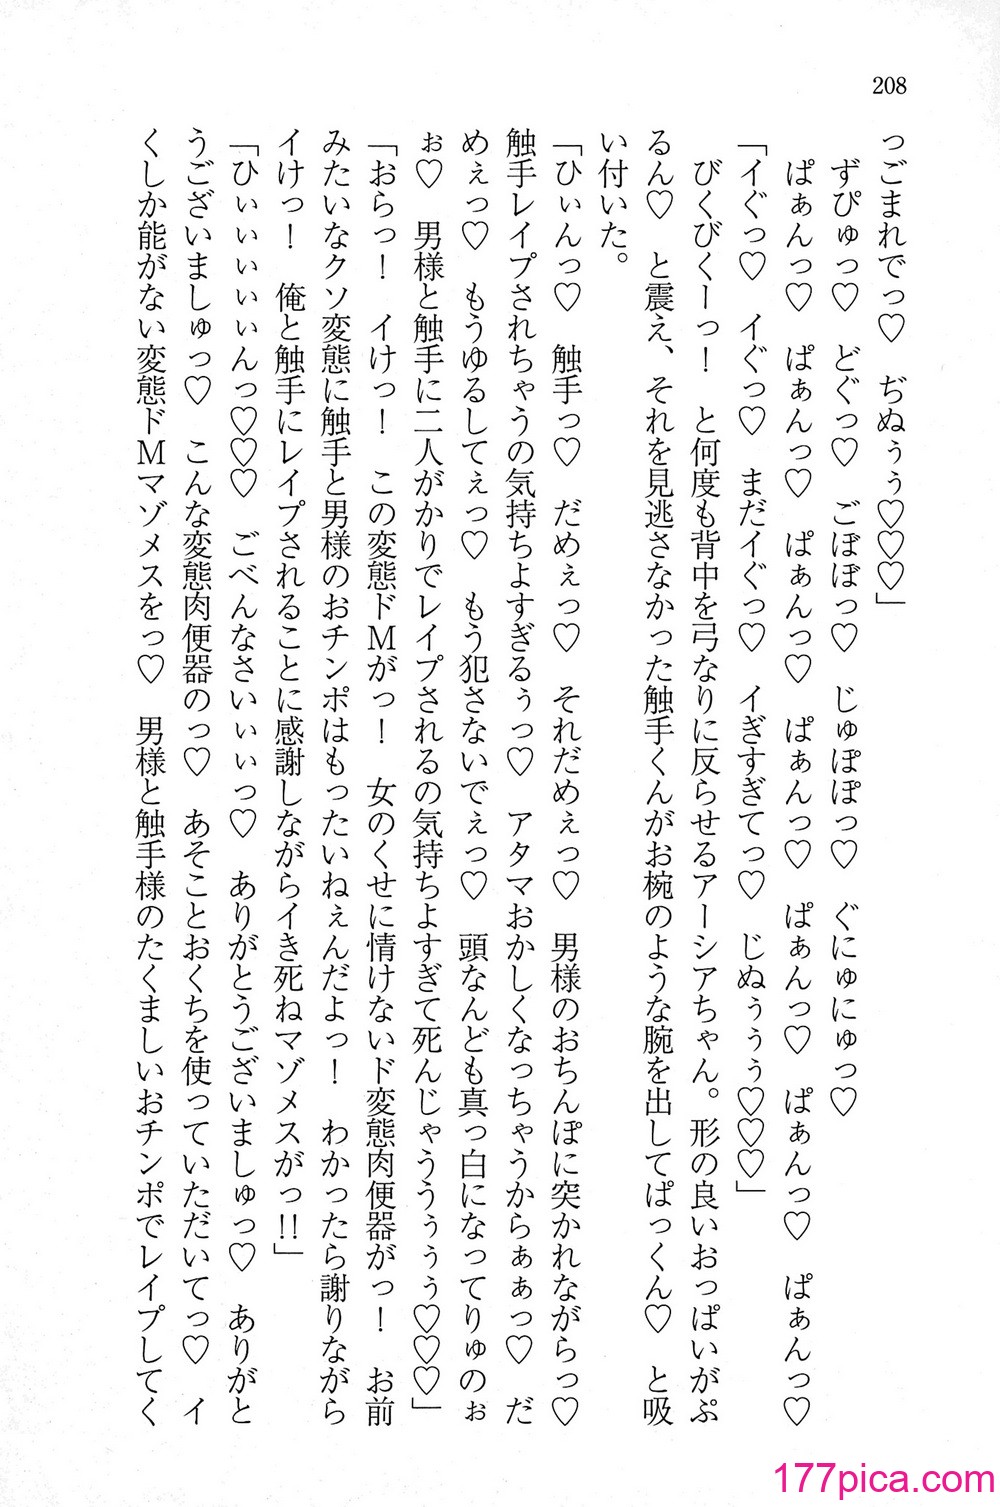 208
っごまれでっ♡　ぢぬぅぅ♡♡♡」
　ずぴゅっ♡　どぐっ♡　ごぼぼっ♡　じゅぽぽっ♡　ぐにゅにゅっ♡
　ぱぁんっ♡　ぱぁんっ♡　ぱぁんっ♡　ぱぁんっ♡　ぱぁんっ♡　ぱぁんっ♡　ぱぁんっ♡
「イぐっ♡　イぐっ♡　まだイぐっ♡　イぎすぎてっ♡　じぬぅぅぅ♡♡♡」
　びくびくーっ！　と何度も背中を弓なりに反らせるアーシアちゃん。形の良いおっぱいがぷ
るん♡　と震え、それを見逃さなかった触手くんがお椀のような腕を出してぱっくん♡　と吸
い付いた。
「ひぃんっ♡　触手っ♡　だめぇっ♡　それだめぇっ♡　男様のおちんぽに突かれながらっ♡
触手レイプされちゃうの気持ちよすぎるぅっ♡　アタマおかしくなっちゃうからぁぁっ♡　だ
めぇっ♡　もうゆるしてぇっ♡　もう犯さないでぇっ♡　頭なんども真っ白になってりゅのぉ
ぉ♡　男様と触手に二人がかりでレイプされるの気持ちよすぎて死んじゃううぅぅぅ♡♡♡」
「おらっ！　イけっ！　この変態ドМがっ！　女のくせに情けないド変態肉便器がっ！　お前
みたいなクソ変態に触手と男様のおチンポはもったいねぇんだよっ！　わかったら謝りながら
イけっ！　俺と触手にレイプされることに感謝しながらイき死ねマゾメスがっ!!」
「ひぃぃぃぃぃんっ♡♡♡　ごべんなさいぃぃっ♡　ありがとうございましゅっ♡　ありがと
うございましゅっ♡　こんな変態肉便器のっ♡　あそことおくちを使っていただいてっ♡　イ
くしか能がない変態ドМマゾメスをっ♡　男様と触手様のたくましいおチンポでレイプしてく
177pica.com